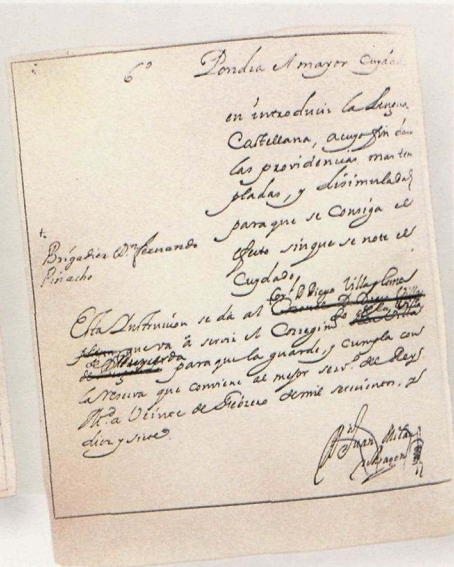 6º Pondra el mayor Cuydado
en introducir la Lengua
Castellana, acuyo fin dara
las providencias mas tem
pladas, y disimuladas
para que se Consiga el
efecto, sin que se note el
Cuydado,
Brigadier Dn. fernando
Pinacho
Esta Instrucion se dà al
que va à servir el Corregimto de
para que la guarde, y cumpla con
la reserva que conviene al mejor servo. del Rey
Md. a Veinte de Febrero de mil setecientos, y
diez y siete